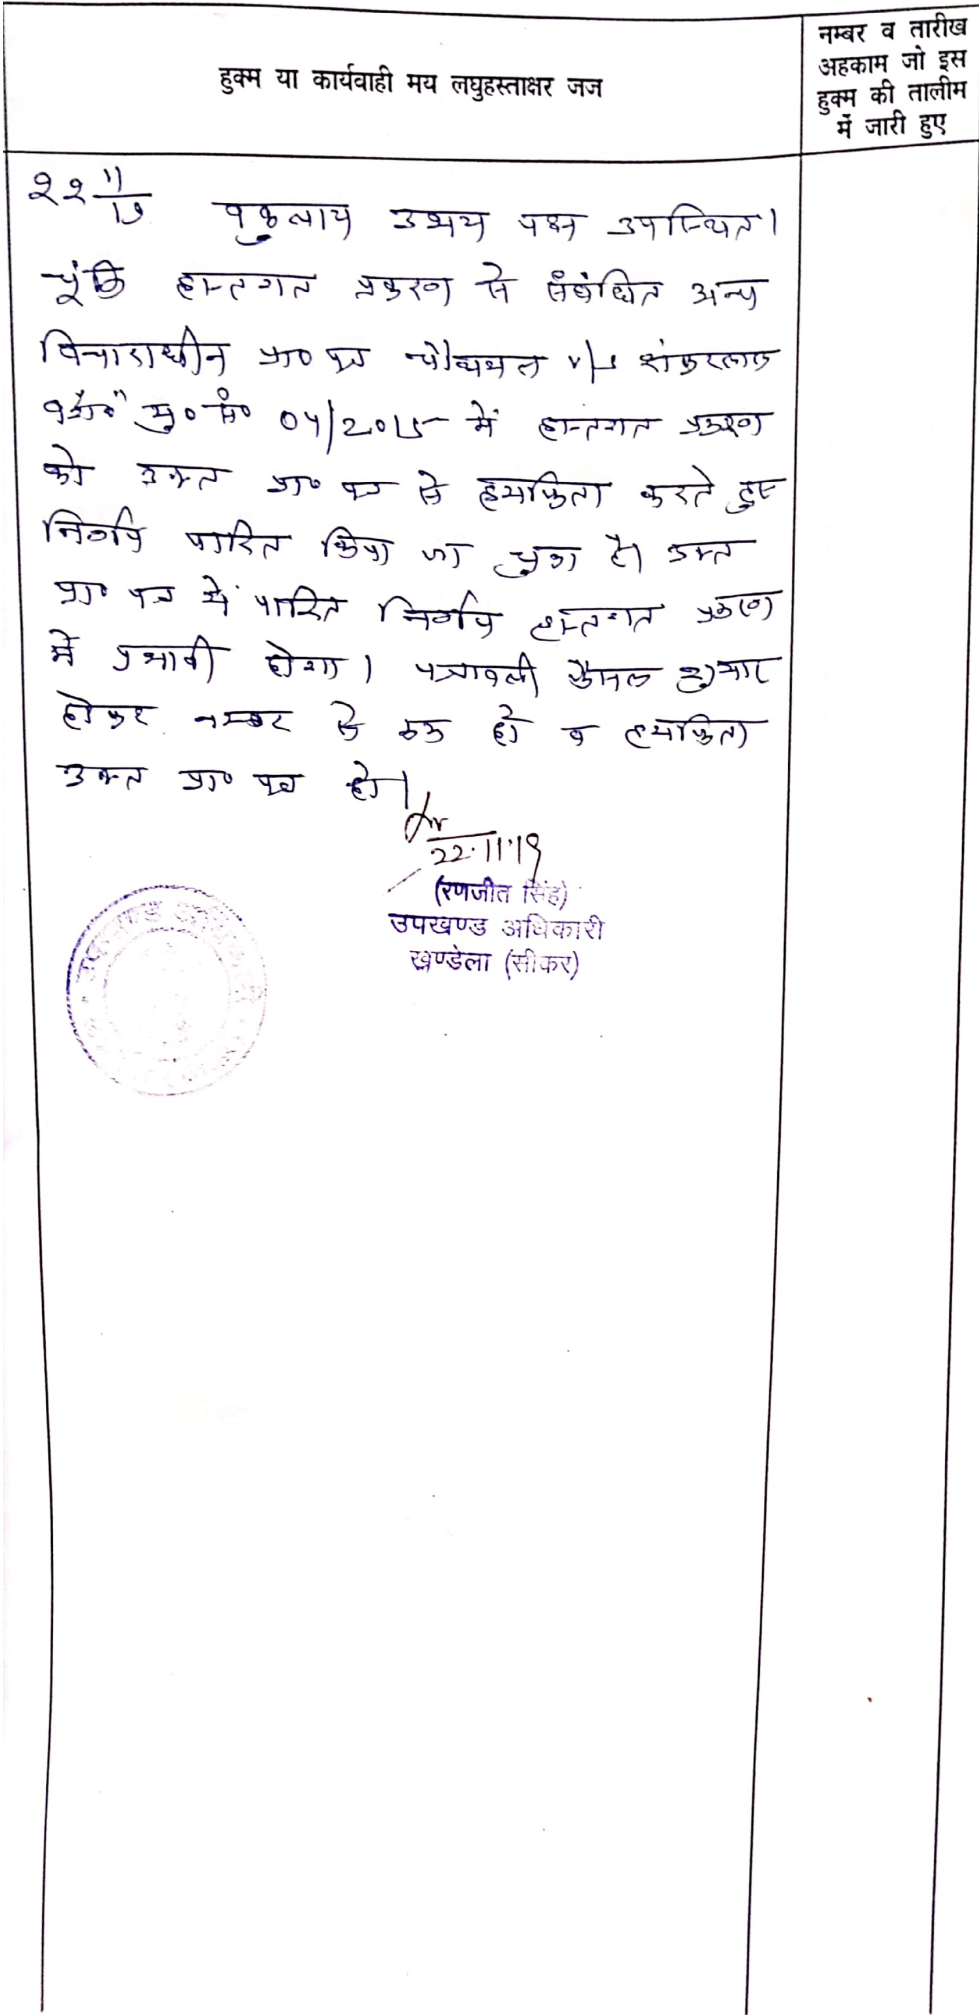 हुक्म या कार्यवाही मय लघुहस्ताक्षर जज
नम्बर व तारीख
अहकाम जो इस
हुक्म की तालीम
में जारी हुए
22 11/19 वकुलाय उभय पक्ष उपस्थित।
चूंकि हस्तगत प्रकरण से संबंधित अन्य
विचाराधीन प्रा० पत्र चौथमल v/s शंकरलाल
वगै० मु० सं० 04/2015 में हस्तगत प्रकरण
को उक्त प्रा० पत्र से हमफिता करते हुए
निर्णय पारित किया जा चुका है। उक्त
प्रा० पत्र में पारित निर्णय हस्तगत प्रकरण
में प्रभावी होगा। पत्रावली फैसल शुमार
होकर नम्बर से कम हो व हमफिता
उक्त प्रा० पत्र हो।
22.11.19
(रणजीत सिंह)
उपखण्ड अधिकारी
खण्डेला (सीकर)